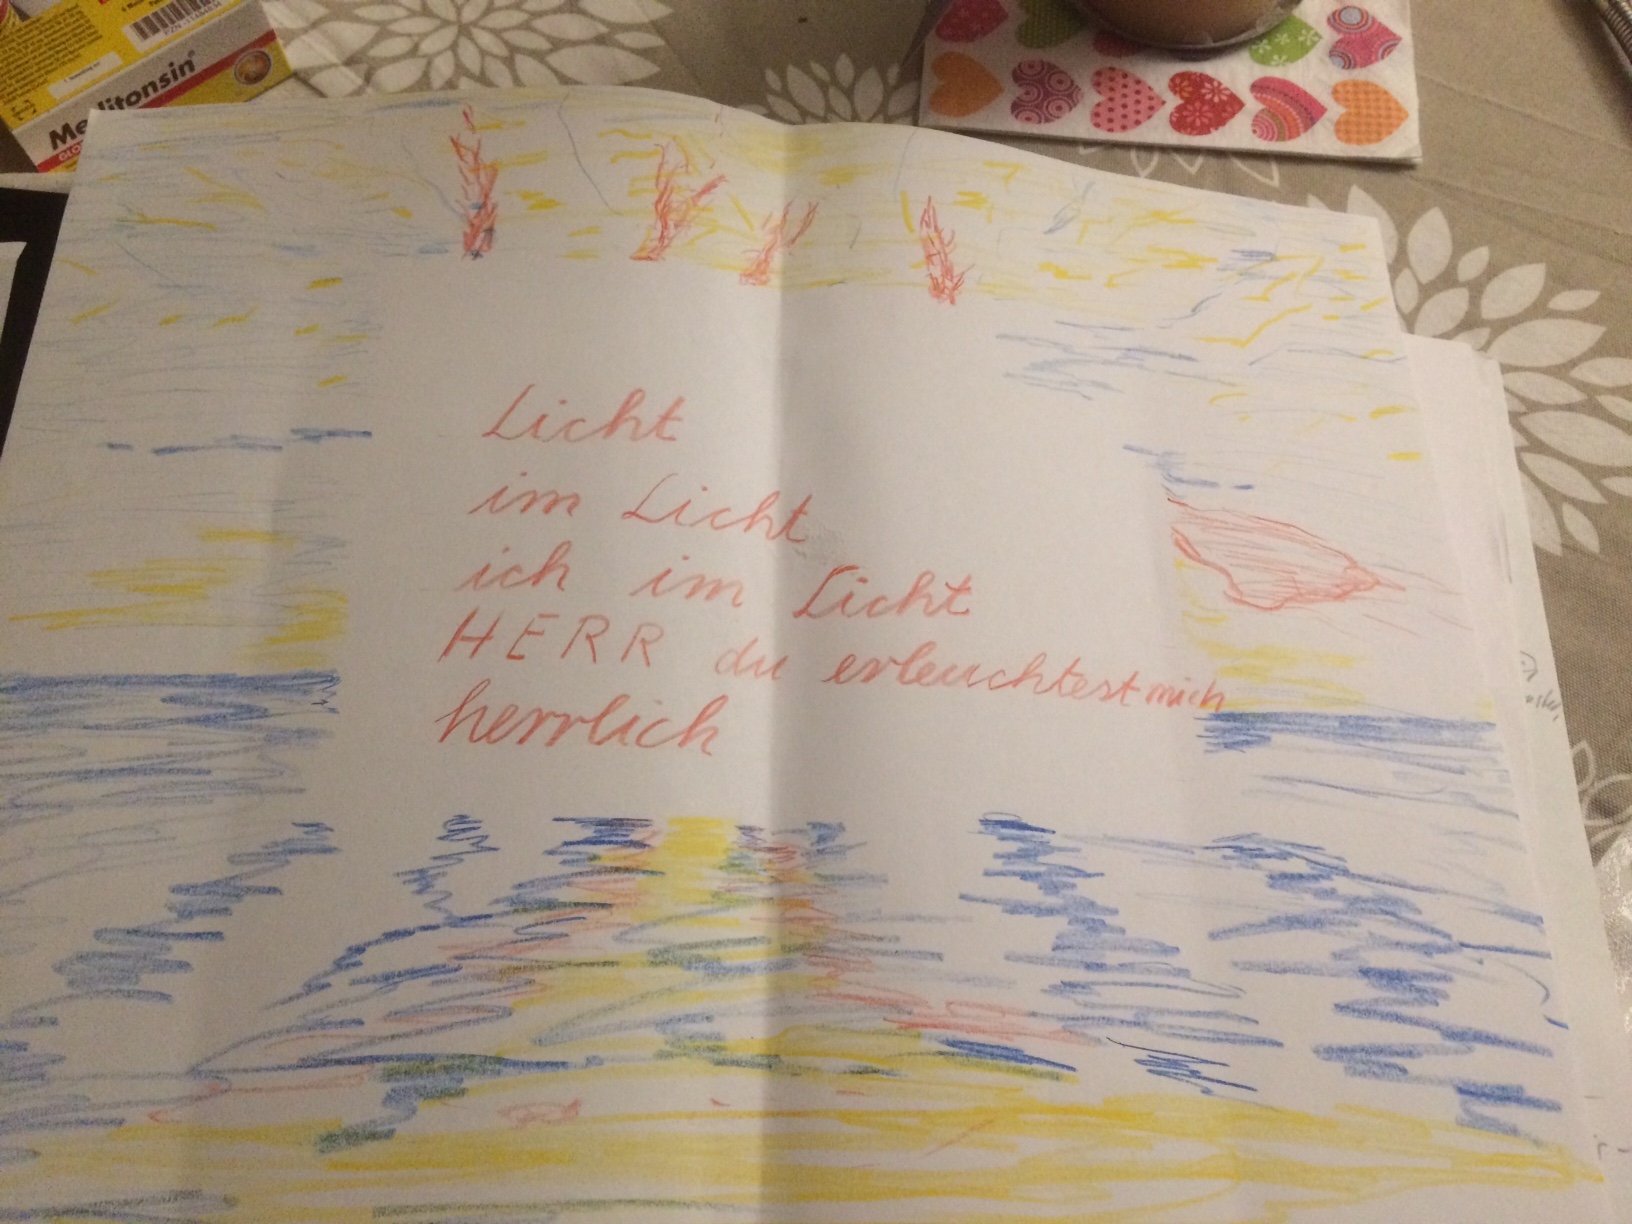 Meditonsin®
Licht
im Licht
ich im Licht
HERR du erleuchtest mich
herrlich